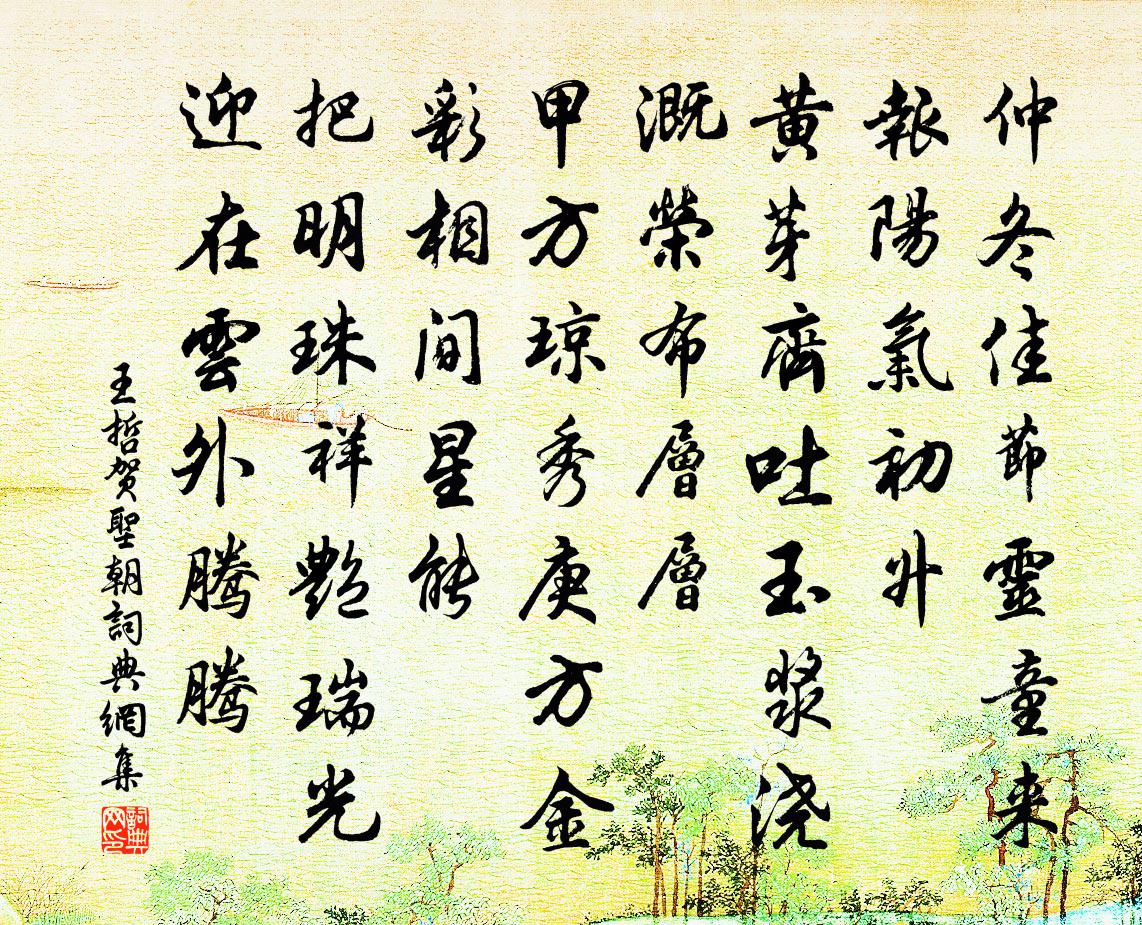 仲冬佳節靈童来
報陽氣初升
黃芽齊吐玉漿浇
溉榮布層層
甲方琼秀庚方金
彩相间星能
把明珠祥艷瑞光
迎在雲外騰騰
王哲贺聖朝詞典網集
詞典网印